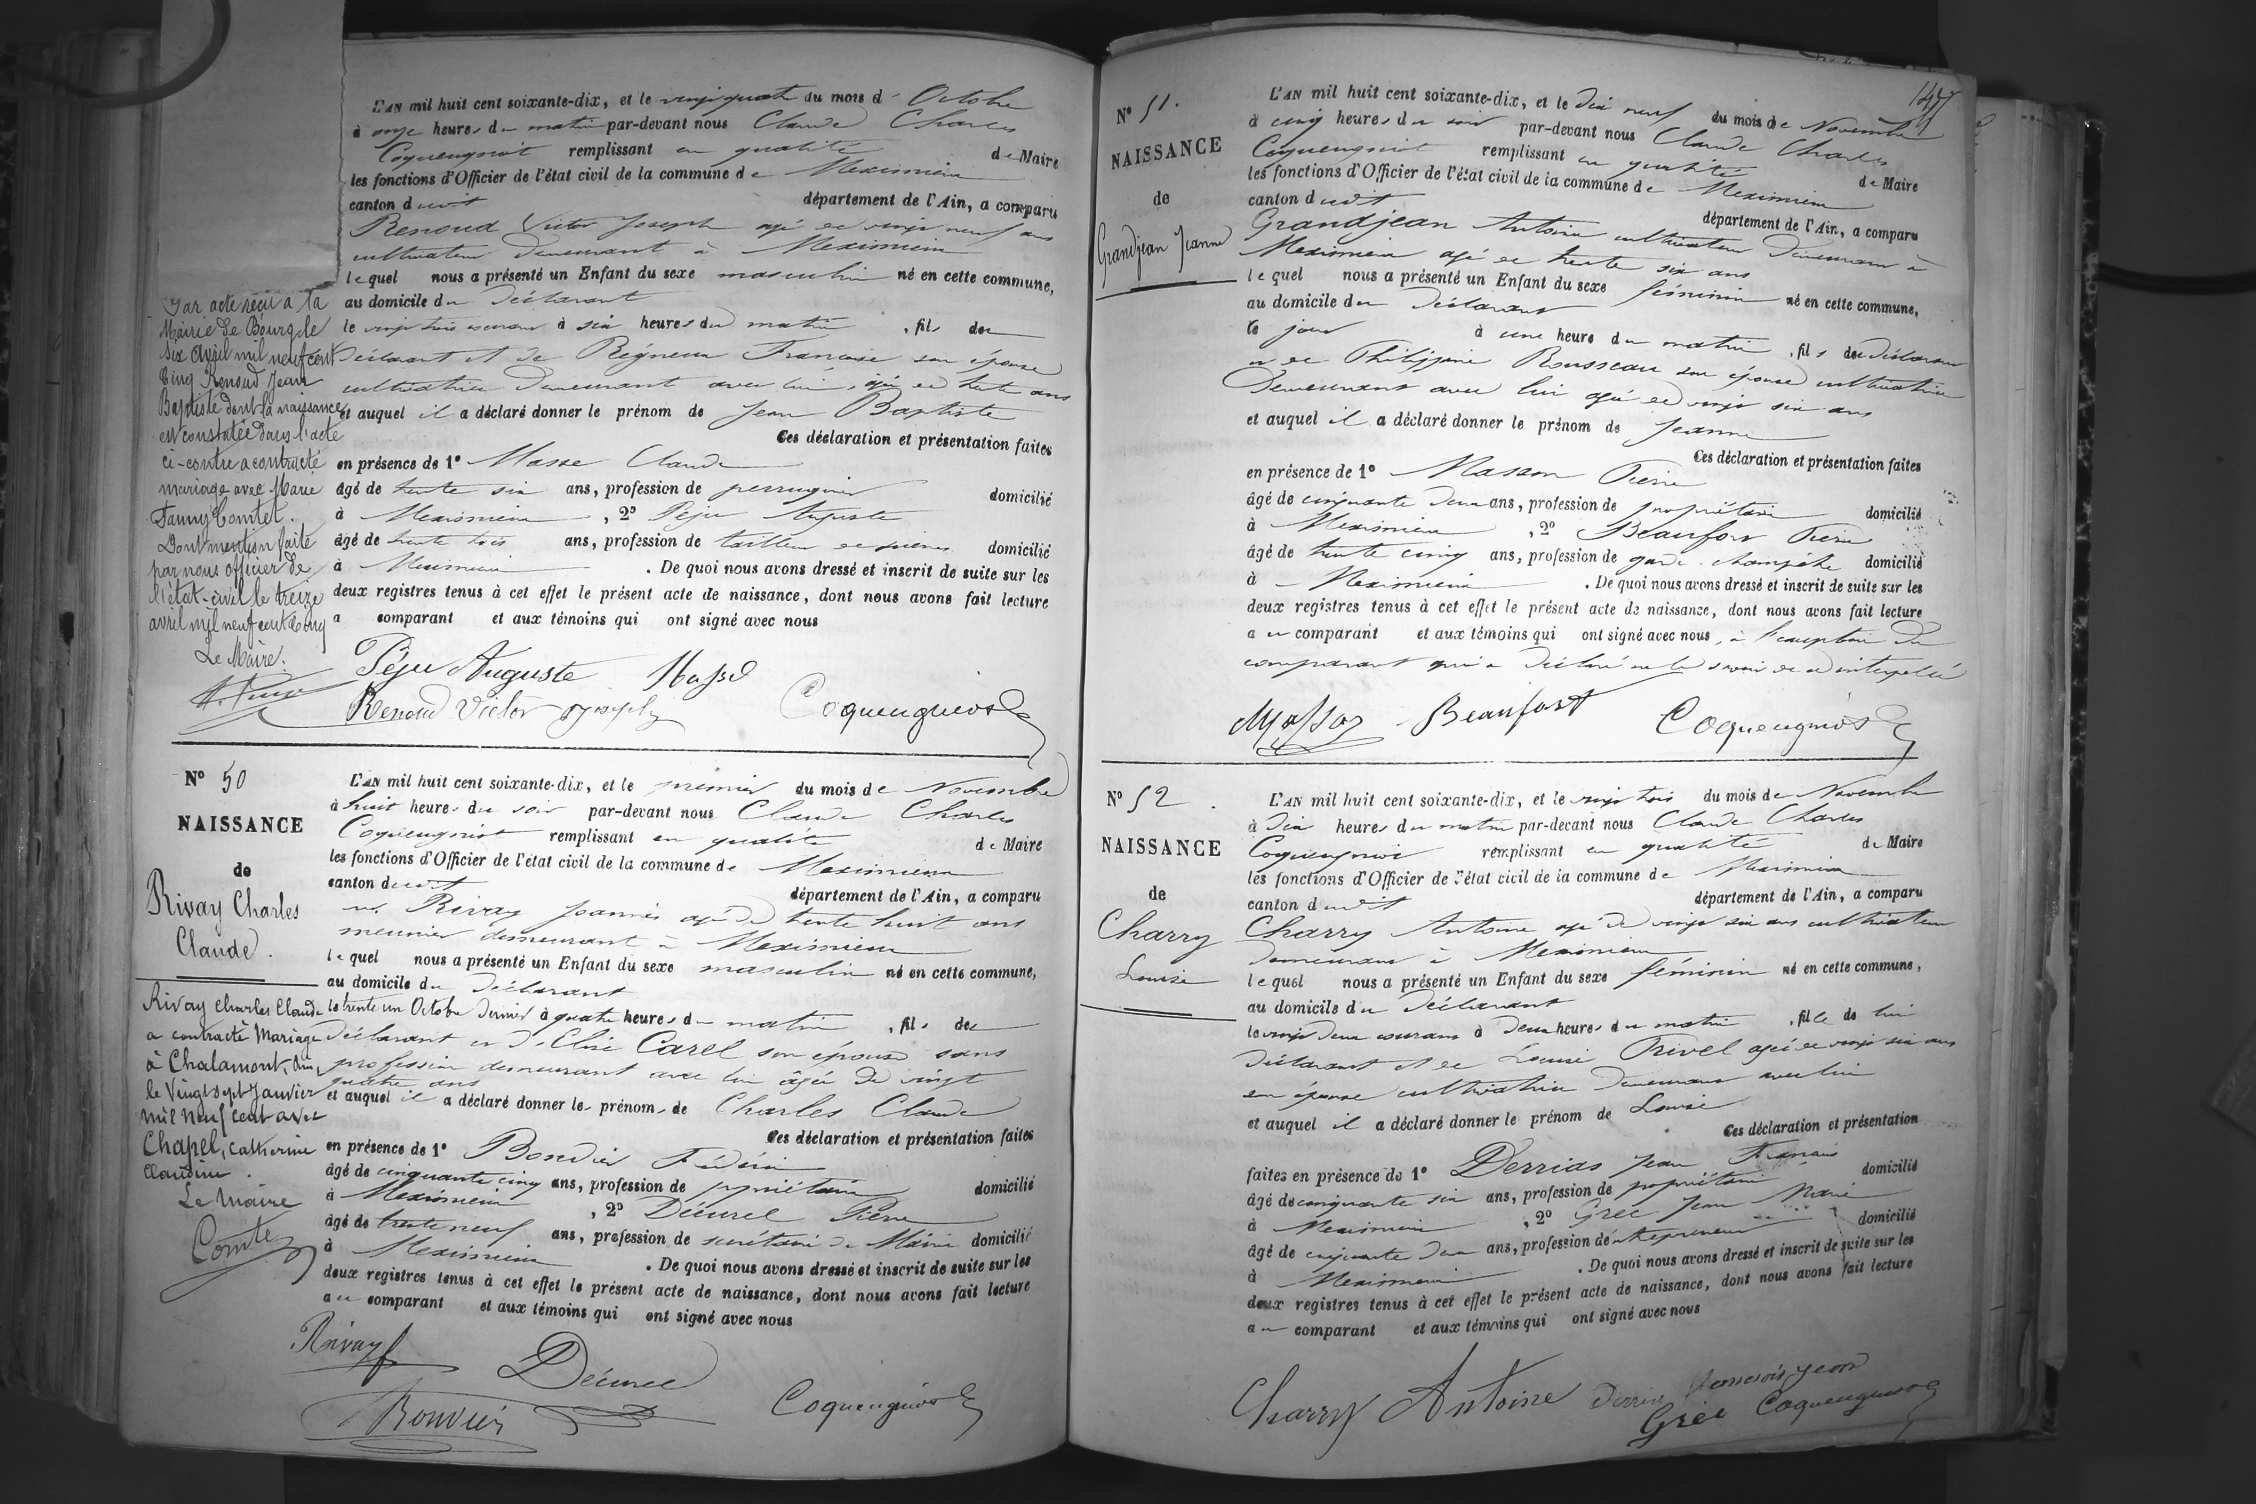 L'AN mil huit cent soixante-dix, et le vingt quatre du mois d' Octobre
à onze heures du matin par-devant nous Claude Charles
Coqueugniot remplissant en qualité de Maire
les fonctions d'Officier de l'état civil de la commune de Meximieux
canton dudit département de l'Ain, a comparu
Renoud Victor Joseph agé de vingt neuf ans
cultivateur demeurant à Meximieux
lequel nous a présenté un Enfant du sexe masculin né en cette commune,
au domicile du déclarant
le vingt trois courant à six heures du matin , fils du
déclarant et de Françoise son épouse
cultivatrice demeurant avec lui, agée de trente ans
et auquel il a déclaré donner le prénom de Jean Baptiste
Ces déclaration et présentation faites
en présence de 1º Masse Claude
âgé de trente six ans, profession de perruquier domicilié
à Meximieux , 2º Péju Auguste
âgé de trente trois ans, profession de tailleur de pierres domicilié
à Meximieux . De quoi nous avons dressé et inscrit de suite sur les
deux registres tenus à cet effet le présent acte de naissance, dont nous avons fait lecture
a comparant et aux témoins qui ont signé avec nous
Péju Auguste Masse
Renoud Victor Joseph Coqueugniot
Par acte reçu à la
Mairie de Bourg le
six avril mil neuf cent
cinq Renoud Jean
Baptiste dont la naissance
est constatée dans l'acte
ci-contre a contracté
mariage avec Marie
Fanny Comtet.
Dont mention faite
par nous officier de
l'état-civil le treize
avril mil neuf cent cinq
Le Maire.
Nº 50
NAISSANCE
de
Rivay Charles
Claude.
L'AN mil huit cent soixante-dix, et le premier du mois de Novembre
à huit heures du soir par-devant nous Claude Charles
Coqueugniot remplissant en qualité de Maire
les fonctions d'Officier de l'état civil de la commune de Meximieux
canton dudit département de l'Ain, a comparu
Rivay Joannès agé de trente huit ans
meunier demeurant à Meximieux
lequel nous a présenté un Enfant du sexe masculin né en cette commune,
au domicile du déclarant
le trente un Octobre dernier à quatre heures du matin , fils du
déclarant et d'Elise Carel son épouse sans
profession demeurant avec lui âgée de vingt
quatre ans
et auquel il a déclaré donner les prénoms de Charles Claude
Ces déclaration et présentation faites
en présence de 1º Bouvier
âgé de cinquante cinq ans, profession de propriétaire domicilié
à Meximieux , 2º Décurel Pierre
âgé de trente neuf ans, profession de secrétaire de Mairie domicilié
à Meximieux . De quoi nous avons dressé et inscrit de suite sur les
deux registres tenus à cet effet le présent acte de naissance, dont nous avons fait lecture
au comparant et aux témoins qui ont signé avec nous
Rivay Décurel
Bouvier Coqueugniot
Rivay Charles Claude
a contracté Mariage
à Chalamont, Ain,
le Vingt sept Janvier
mil neuf cent avec
Chapel, Catherine
Claudine.
Le Maire
Comte
147
Nº 51.
NAISSANCE
de
Grandjean Jeanne
L'AN mil huit cent soixante-dix, et le dix neuf du mois de Novembre
à cinq heures du soir par-devant nous Claude Charles
Coqueugniot remplissant en qualité de Maire
les fonctions d'Officier de l'état civil de la commune de Meximieux
canton dudit département de l'Ain, a comparu
Grandjean Antoine cultivateur demeurant à
Meximieux agé de trente six ans
lequel nous a présenté un Enfant du sexe féminin né en cette commune,
au domicile du déclarant
ce jour à une heure du matin , fils du déclarant
et de Philippine Rousseau son épouse cultivatrice
demeurant avec lui agée de vingt six ans
et auquel il a déclaré donner le prénom de Jeanne
Ces déclaration et présentation faites
en présence de 1º Masson Pierre
âgé de cinquante deux ans, profession de propriétaire domicilié
à Meximieux , 2º Beaufort Pierre
âgé de trente cinq ans, profession de garde-champêtre domicilié
à Meximieux . De quoi nous avons dressé et inscrit de suite sur les
deux registres tenus à cet effet le présent acte de naissance, dont nous avons fait lecture
au comparant et aux témoins qui ont signé avec nous, à l'exception du
comparant qui a déclaré ne le savoir de ce interpellé
Masson Beaufort Coqueugniot
Nº 52.
NAISSANCE
de
Charry
Louise
L'AN mil huit cent soixante-dix, et le vingt trois du mois de Novembre
à dix heures du matin par-devant nous Claude Charles
Coqueugniot remplissant en qualité de Maire
les fonctions d'Officier de l'état civil de la commune de Meximieux
canton dudit département de l'Ain, a comparu
Charry Antoine agé de vingt six ans cultivateur
demeurant à Meximieux
lequel nous a présenté un Enfant du sexe féminin né en cette commune,
au domicile du déclarant
le vingt deux courant à deux heures du matin , fille de lui
déclarant et de Louise Trivel agée de vingt six ans
son épouse cultivatrice demeurant avec lui
et auquel il a déclaré donner le prénom de Louise
Ces déclaration et présentation
faites en présence de 1º Derrias Jean François
âgé de cinquante six ans, profession de propriétaire domicilié
à Meximieux , 2º Grée Jean Marie
âgé de cinquante deux ans, profession d'entrepreneur domicilié
à Meximieux . De quoi nous avons dressé et inscrit de suite sur les
deux registres tenus à cet effet le présent acte de naissance, dont nous avons fait lecture
au comparant et aux témoins qui ont signé avec nous
Charry Antoine françois jean
Grée Coqueugniot